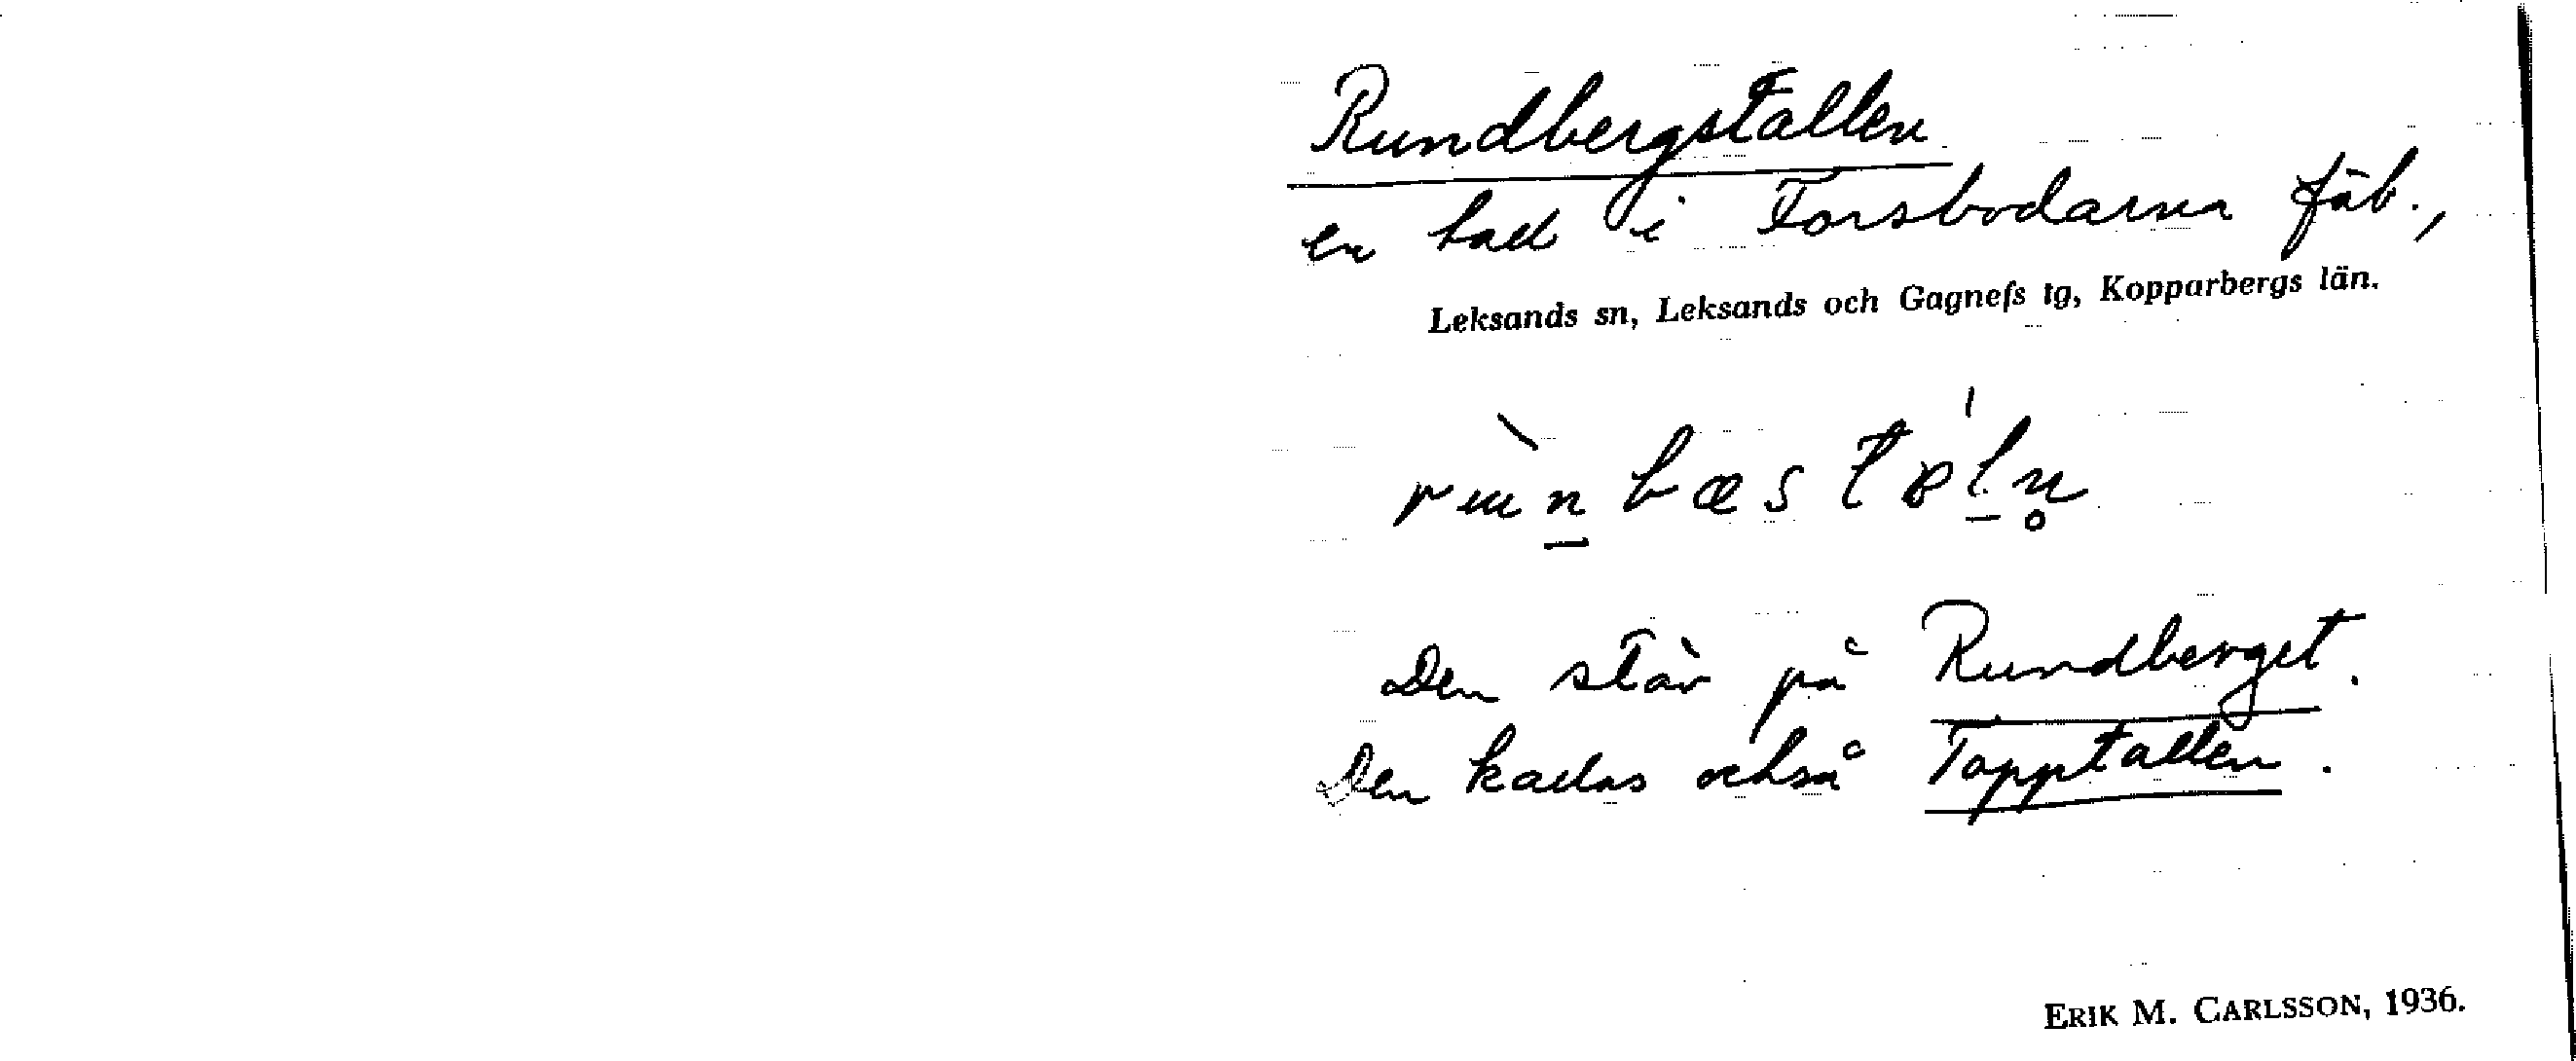 Rundbergstallen
en tall i Forsbodarna fäb.,
Leksands sn, Leksands och Gagnefs tg, Kopparbergs län.
Den står på Rundberget.
Den kallas också Topptallen.
ERIK M. CARLSSON, 1936.